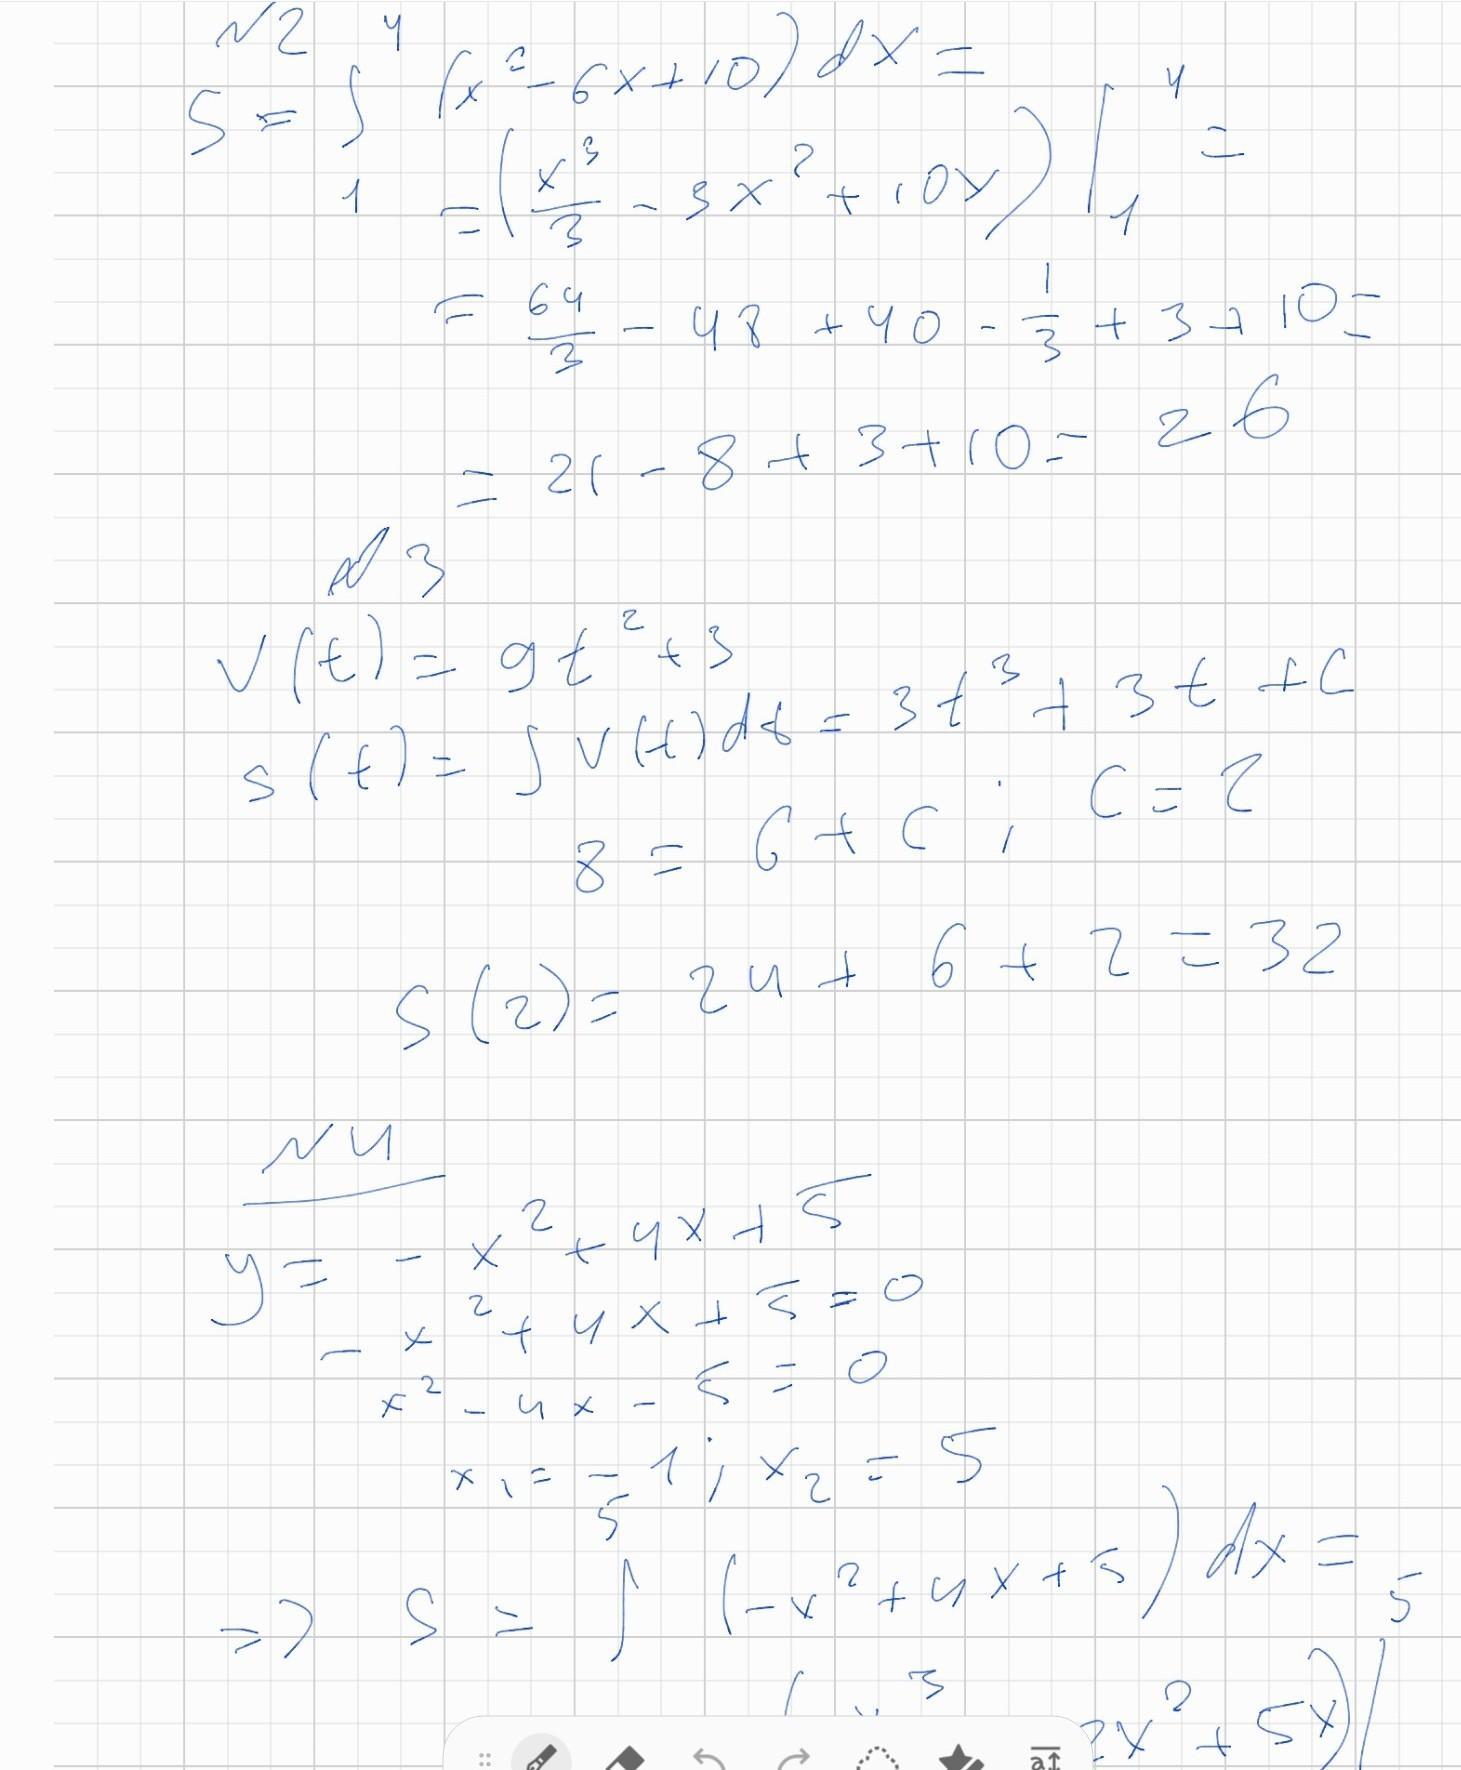 №2
S = ∫₁⁴ (x² - 6x + 10) dx =
= (x³/3 - 3x² + 10x) |₁⁴ =
= 64/3 - 48 + 40 - 1/3 + 3 + 10 =
= 21 - 8 + 3 + 10 = 26
№3
V(t) = 9t² + 3
s(t) = ∫ V(t) dt = 3t³ + 3t + C
8 = 6 + C ; C = 2
S(2) = 24 + 6 + 2 = 32
№4
y = - x² + 4x + 5
- x² + 4x + 5 = 0
x² - 4x - 5 = 0
x₁ = - 1 ; x₂ = 5
=> S = ∫⁵ (-x² + 4x + 5) dx =
( x³ 2x² + 5x) |⁵